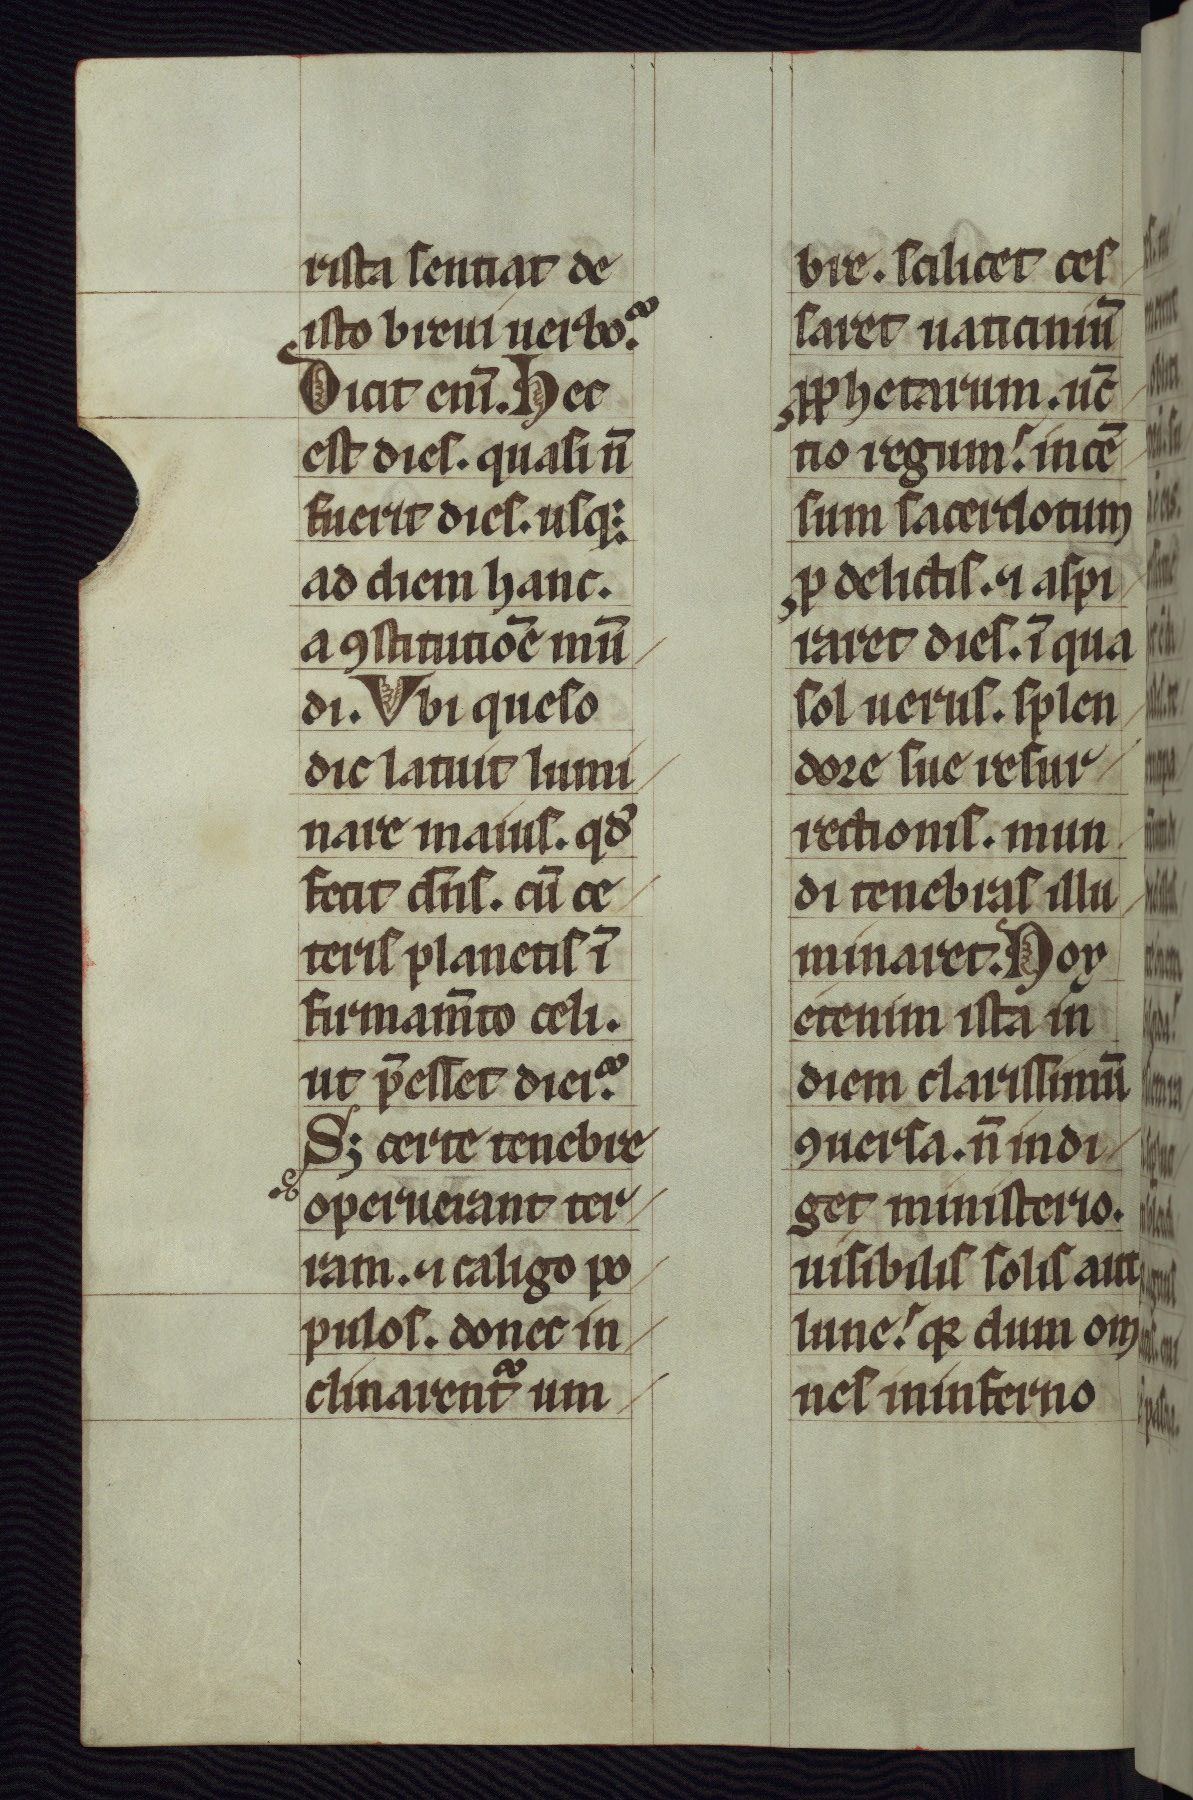 rista sentiat de
isto breui uerbo?
Dicit eni̅. Hec
est dies. quasi n̅
fuerit dies. usq;
ad diem hanc.
a ꝯstitutio̅e mu̅
di. Vbi queso
dic latuit lumi
nare maius. qđ
fecit dn̅s. cu̅ ce
teris planetis i̅
firmam̅to celi.
ut p̅esset diei?
Sꝫ certe tenebre
operuerant ter
ram. ⁊ caligo po
pulos. donec in
clinarent᷑ um
bre. scilicet ces
saret uaticiniu̅
ꝓphetarum. u̅c
tio regum. ince̅
sum sacerdotum
ꝓ delictis. ⁊ aspi
raret dies. i̅ qua
sol uerus. splen
dore sue resur
rectionis. mun
di tenebras illu
minaret. Nox
etenim ista in
diem clarissimu̅
ꝯuersa. n̅ indi
get ministerio.
uisibilis solis aut
lune. qꝛ dum om
nes in inferno